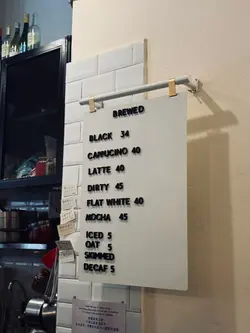 BREWED
BLACK 34
CAPPUCINO 40
LATTE 40
DIRTY 45
FLAT WHITE 40
MOCHA 45
ICED 5
OAT 5
SKIMMED
DECAF 5